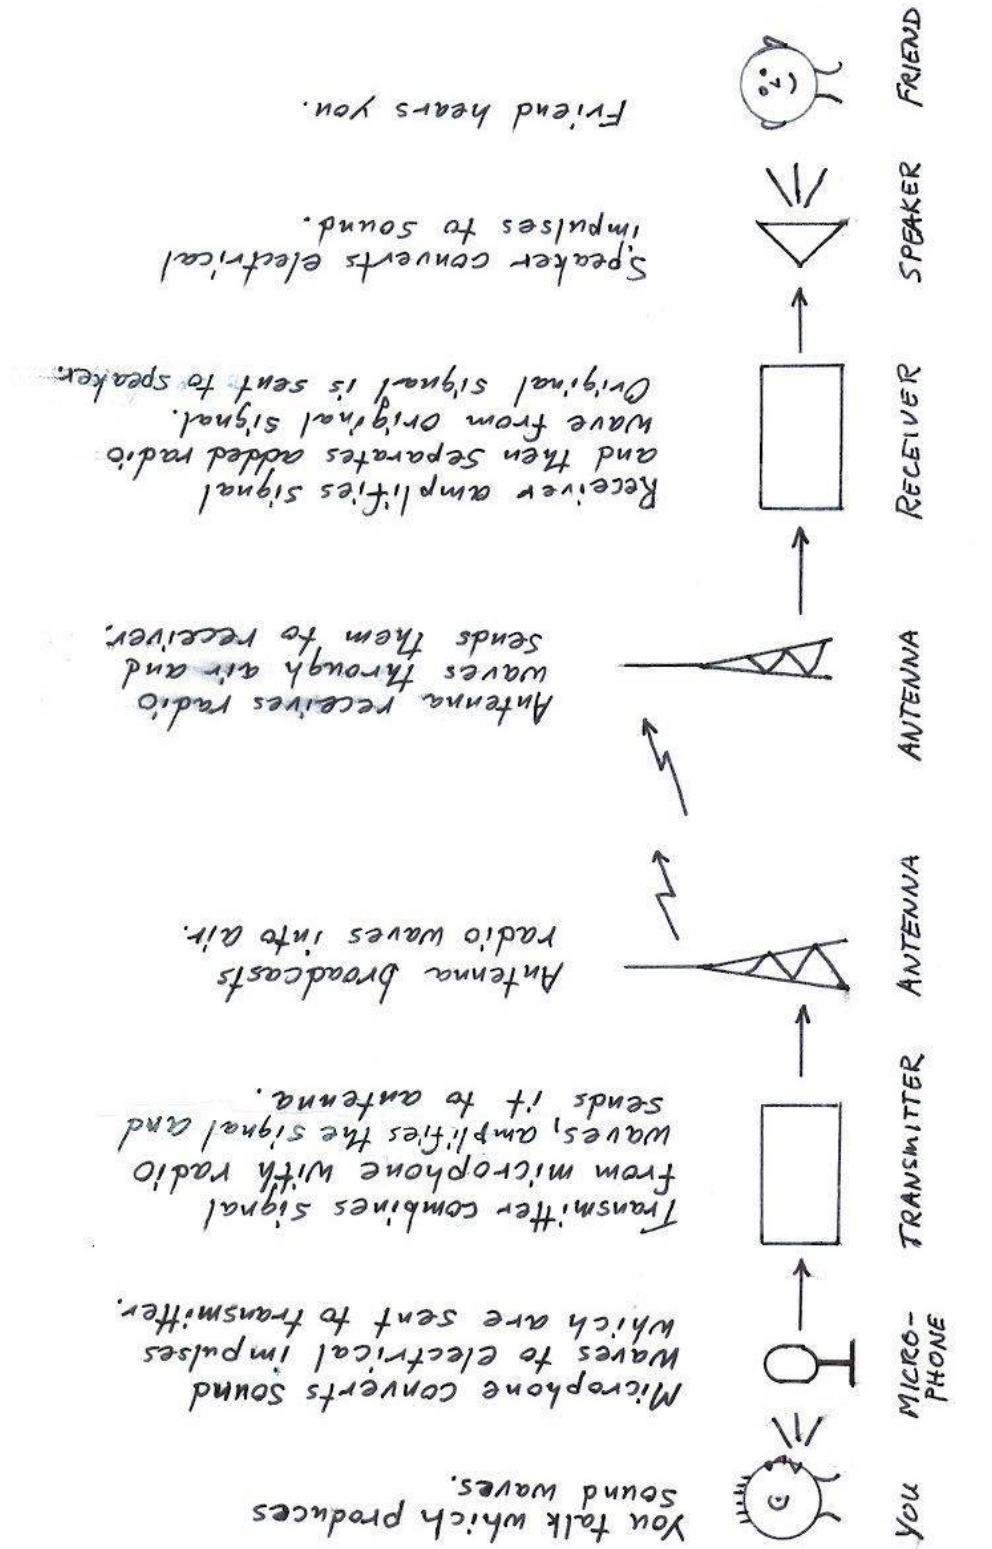 YOU
You talk which produces
sound waves.
MICRO-
PHONE
Microphone converts sound
waves to electrical impulses
which are sent to transmitter.
TRANSMITTER
Transmitter combines signal
from microphone with radio
waves, amplifies the signal and
sends it to antenna.
ANTENNA
Antenna broadcasts
radio waves into air.
ANTENNA
Antenna receives radio
waves through air and
sends them to receiver.
RECEIVER
Receiver amplifies signal
and then separates added radio
wave from original signal.
Original signal is sent to speaker.
SPEAKER
Speaker converts electrical
impulses to sound.
FRIEND
Friend hears you.